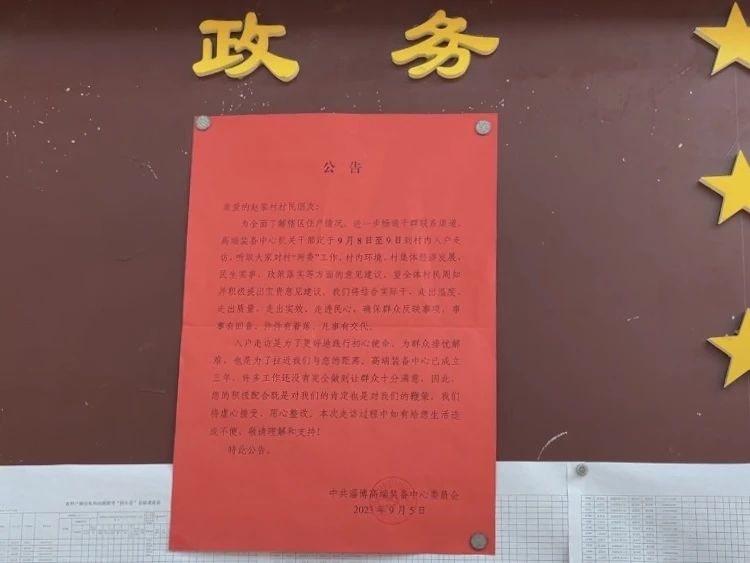 政 务
公 告
亲爱的赵家村村民朋友：
为全面了解辖区住户情况，进一步畅通干群联系渠道，
高端装备中心机关干部定于9月8日至9日到村内入户走
访，听取大家对村“两委”工作、村内环境、村集体经济发展、
民生实事、政策落实等方面的意见建议。望全体村民周知
并积极提出宝贵意见建议，我们将结合实际干，走出温度、
走出质量、走出实效、走进民心，确保群众反映事项，事
事有回音、件件有着落、凡事有交代。
入户走访是为了更好地践行初心使命、为群众排忧解
难，也是为了拉近我们与您的距离。高端装备中心已成立
三年，许多工作还没有完全做到让群众十分满意，因此，
您的积极配合既是对我们的肯定也是对我们的鞭策，我们
将虚心接受、用心整改。本次走访过程中如有给您生活造
成不便，敬请理解和支持！
特此公告。
中共淄博高端装备中心委员会
2023年9月5日